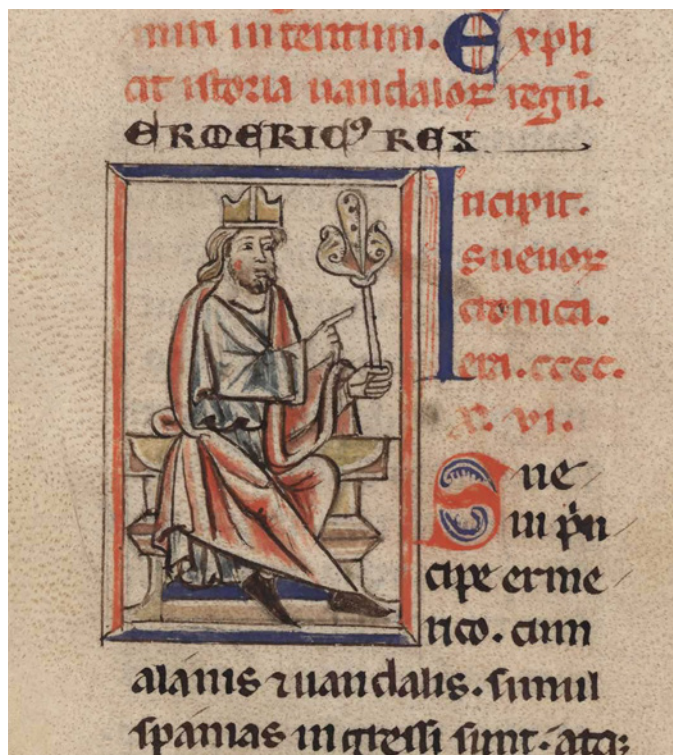 miri in tentum. Expli
cit istoria uandaloꝝ regũ.
ERMERICꝰ REX
Incipit.
sueuoꝝ
cronica.
era. cccc.
x. vi.
Sue
ui pⁱn
cipe erme
rico. cum
alanis ⁊ uandalis. simul
spanias ingressi sunt. atqꝫ